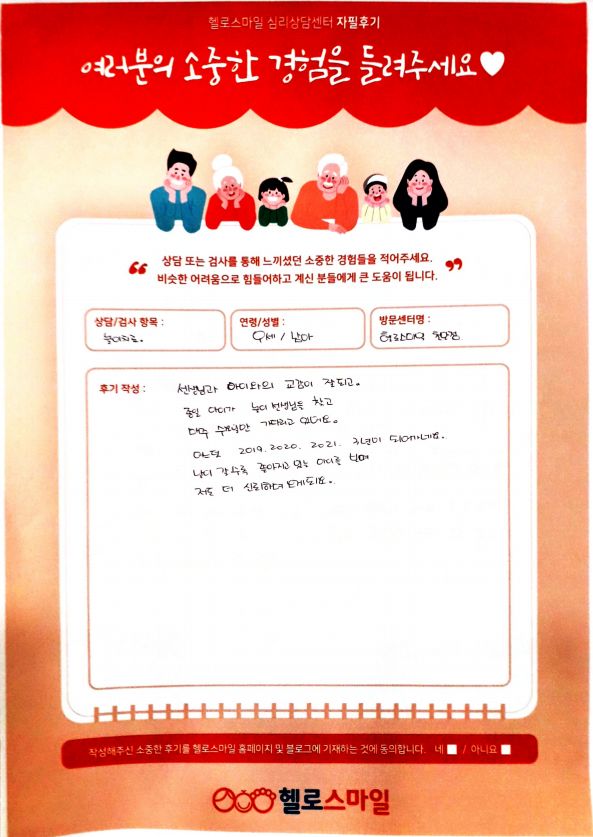 헬로스마일 심리상담센터 자필후기
여러분의 소중한 경험을 들려주세요♥
“ 상담 또는 검사를 통해 느끼셨던 소중한 경험들을 적어주세요.
비슷한 어려움으로 힘들어하고 계신 분들에게 큰 도움이 됩니다. ”
상담/검사 항목 :
놀이치료.
연령/성별 :
9세 / 남아
방문센터명 :
헬로스마일
후기 작성 :
선생님과 아이와의 교감이 잘되고.
종일 아이가 놀이 선생님을 찾고
매주 수업만 기다리고 있어요.
어느덧 2019. 2020. 2021. 3년이 되어가네요.
날이 갈수록 좋아지고 있는 아이를 보며
저도 더 신뢰하며 되요.
작성해주신 소중한 후기를 헬로스마일 홈페이지 및 블로그에 기재하는 것에 동의합니다. 네 / 아니요
헬로스마일